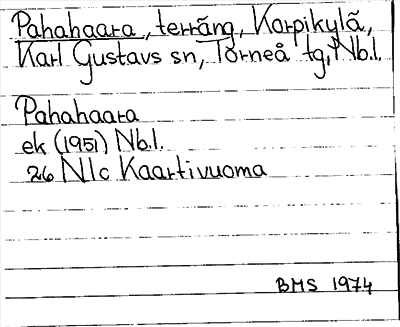 Pahahaara, terräng, Korpikylä,
Karl Gustavs sn, Torneå tg, Nb.l.
Pahahaara
ek (1951) Nb.l.
26 N1c Kaartivuoma
BMS 1974